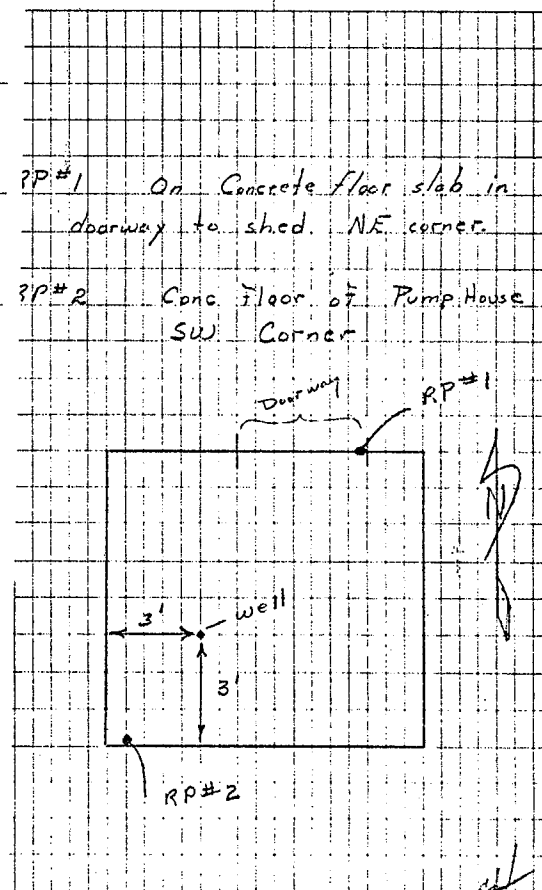 RP#1 On Concrete floor slab in
doorway to shed. NE corner.
RP#2 Conc Floor of Pump House
SW Corner
Doorway
RP#1
N
well
3'
3'
RP#2